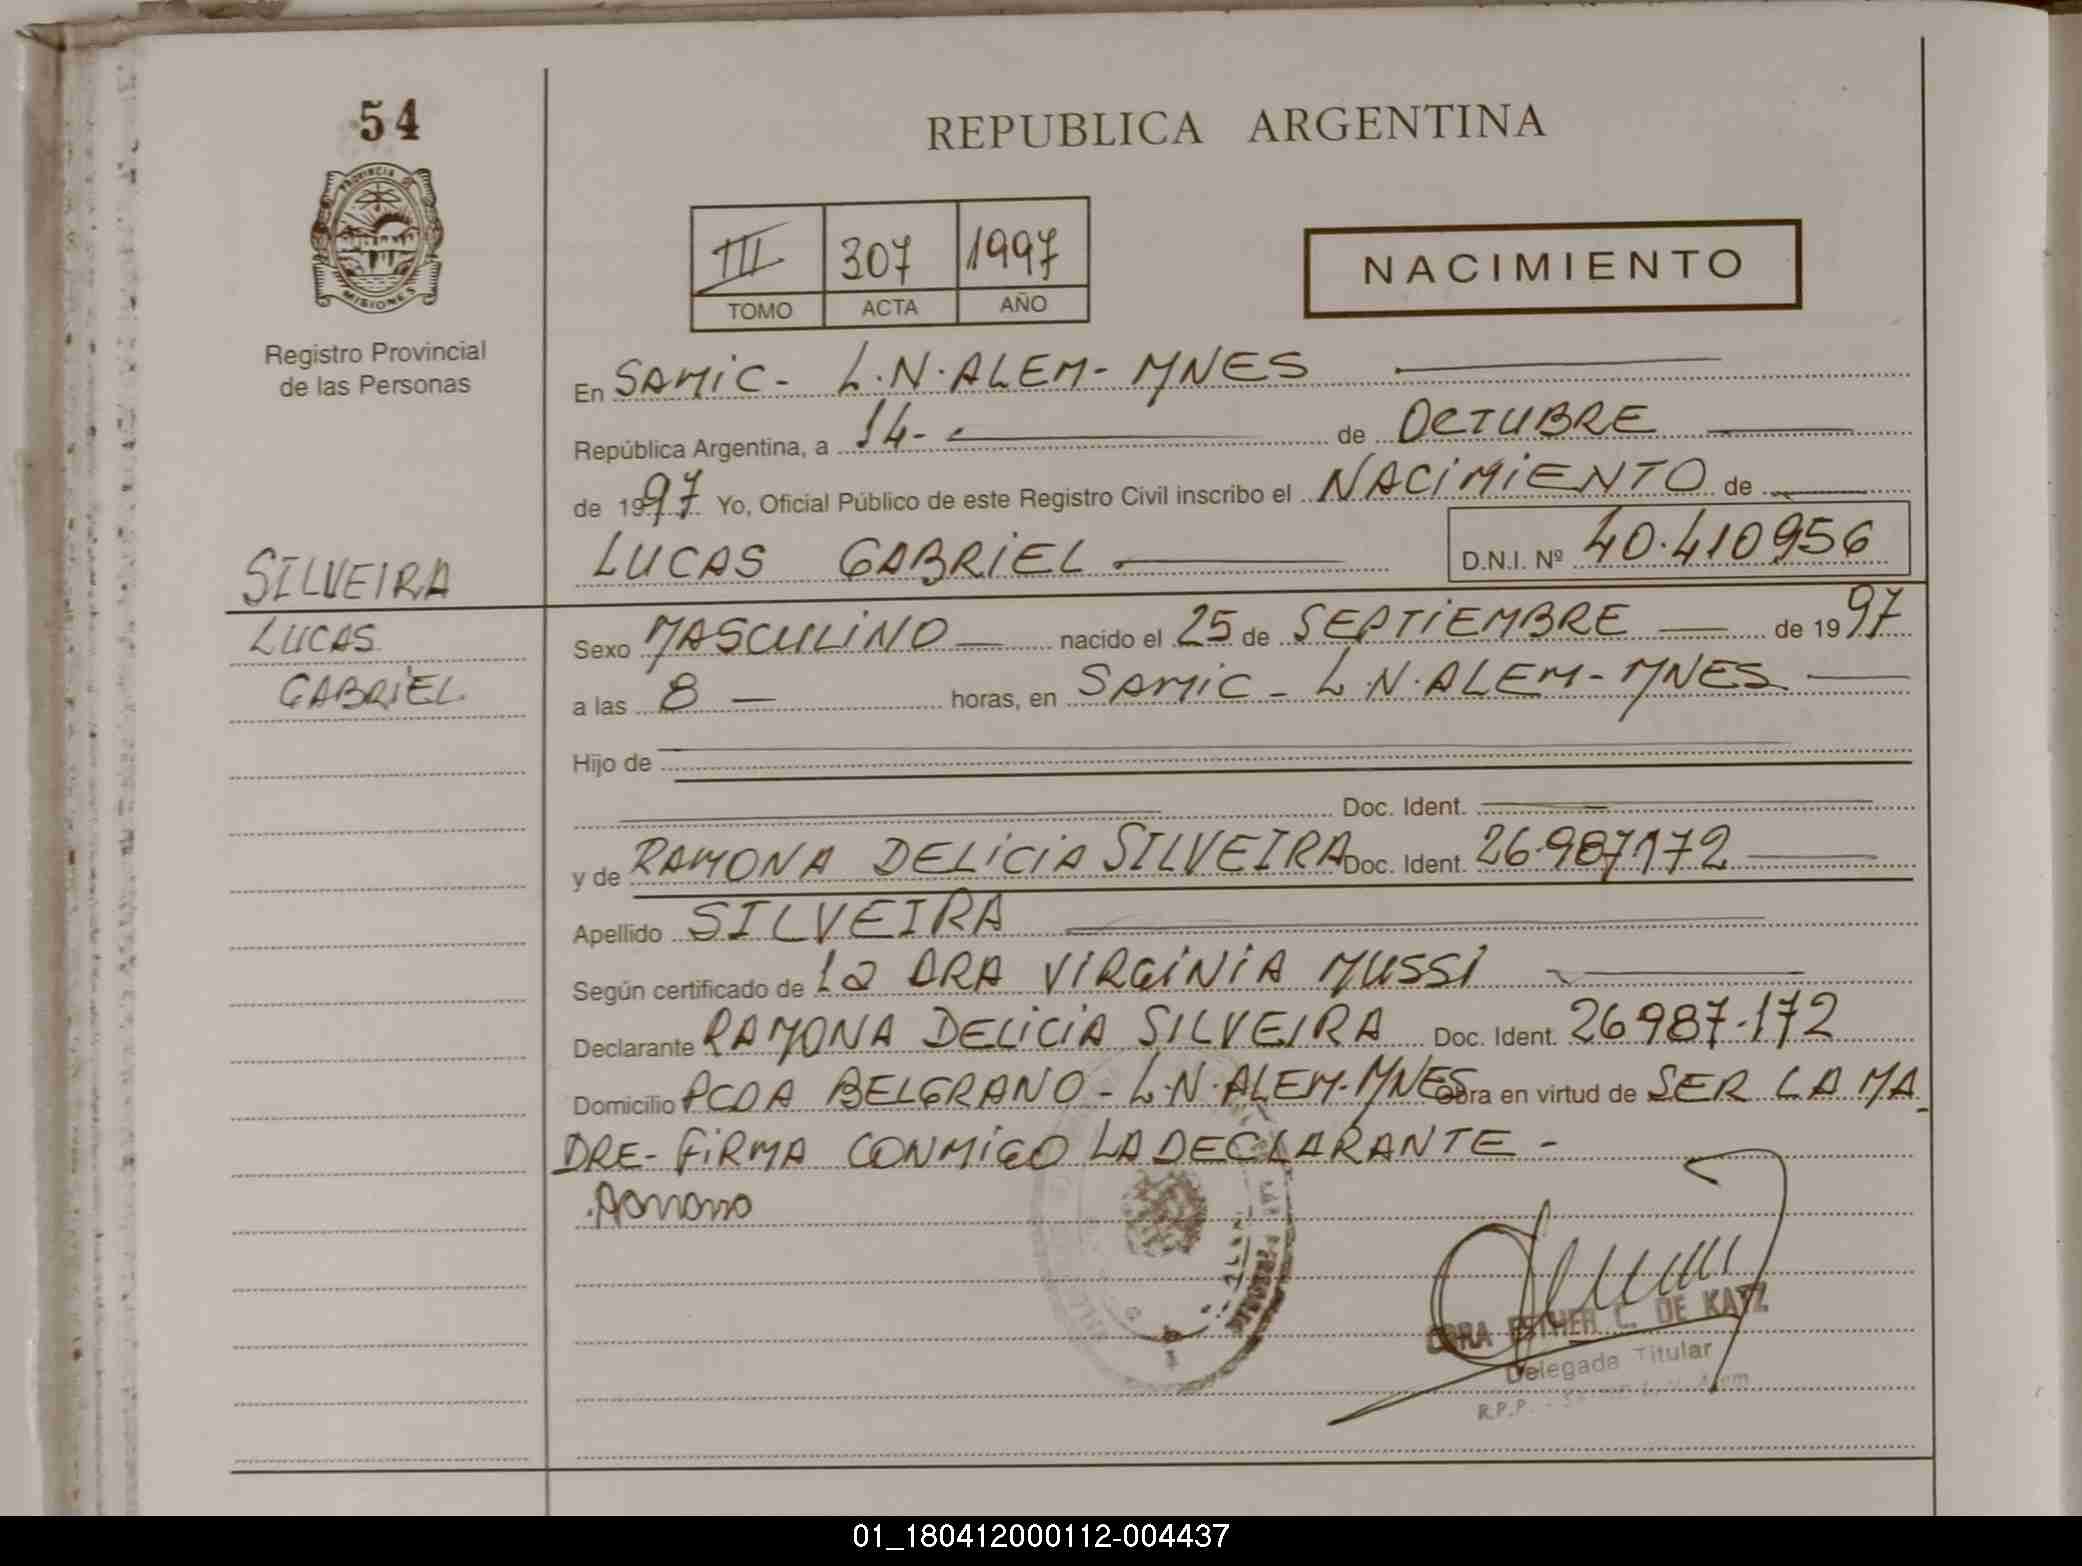 54
PROVINCIA DE
MISIONES
Registro Provincial
de las Personas
REPUBLICA ARGENTINA
III 307 1997
TOMO ACTA AÑO
NACIMIENTO
En SAMIC - L.N. ALEM - MNES
República Argentina, a 14 - de OCTUBRE
de 1997 Yo, Oficial Público de este Registro Civil inscribo el NACIMIENTO de
LUCAS GABRIEL D.N.I. Nº 40.410956
SILVEIRA
LUCAS
GABRIEL
Sexo MASCULINO nacido el 25 de SEPTIEMBRE de 1997
a las 8 horas, en SAMIC - L.N. ALEM - MNES
Hijo de
Doc. Ident.
y de RAMONA DELICIA SILVEIRA Doc. Ident. 26.987172
Apellido SILVEIRA
Según certificado de la DRA VIRGINIA MUSSI
Declarante RAMONA DELICIA SILVEIRA Doc. Ident. 26987.172
Domicilio PCDA BELGRANO - L.N. ALEM - MNES Obra en virtud de SER LA MA
DRE - FIRMA CONMIGO LA DECLARANTE -
ESTHER C. DE KATZ
Delegada Titular
R.P.P.
01_180412000112-004437